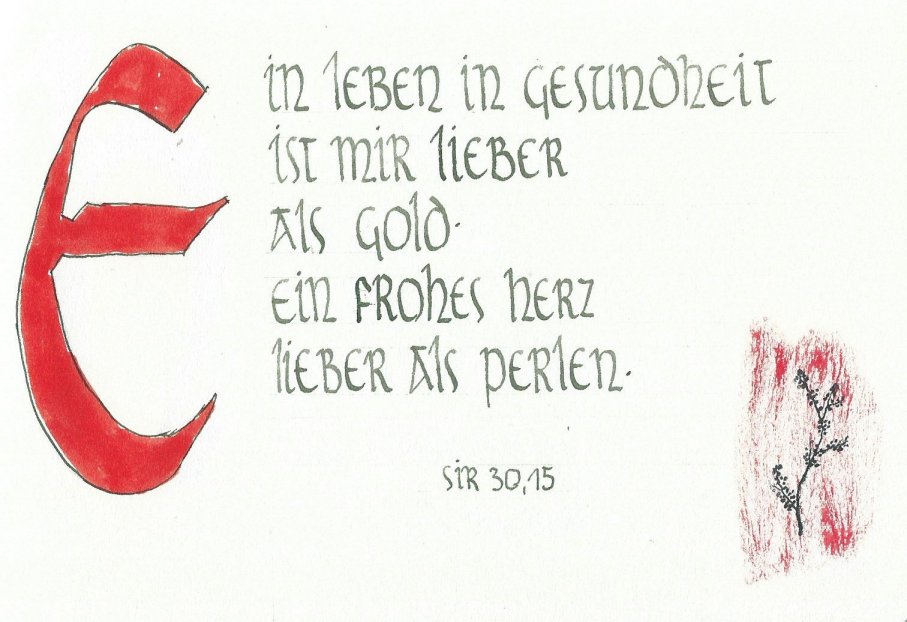 Ein Leben in Gesundheit
ist mir lieber
als Gold.
Ein frohes Herz
lieber als Perlen.
Sir 30,15